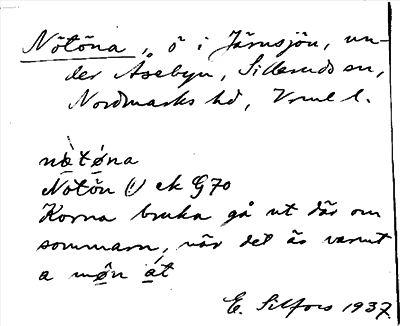 Nötöna, ö i Järnsjön, un-
der Åsebyn, Silleruds sn,
Nordmarks hd, Vrml l.
nø̀tø̀na
Nötön (1) ek G70
Korna bruka gå ut där om
sommarn, när det är varmt
a møn át
E. Silfors 1937.